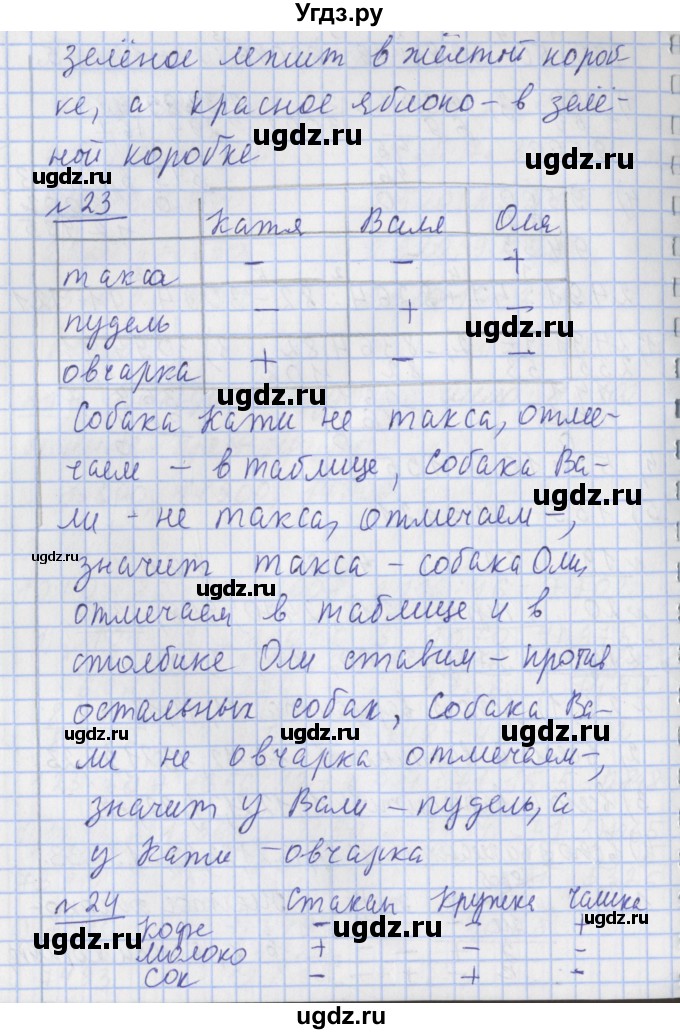 Угдз.ру
зелёное лежит в жёлтой короб-
ке, а красное яблоко - в зелё-
ной коробке
ugdz.ru
ugdz.ru
ugdz.ru
№ 23
Катя Валя Оля
такса - - +
пудель - + -
ugdz.ru
овчарка + - -
ugdz.ru
Собака Кати не такса, отме-
чаем - в таблице, Собака Ва-
ugdz.ru
ли - не такса, отмечаем -,
ugdz.ru
значит такса - собака Оли,
ugdz.ru
отмечаем в таблице и в
ugdz.ru
столбике Оли ставим - против
остальных собак, Собака Ва-
ugdz.ru ugdz.ru
ugdz.ru
ли не овчарка отмечаем -,
значит у Вали - пудель, а
у Кати - овчарка
№ 24
Стакан Кружка Чашка
кофе - - +
ugdz.ru ugdz.ru ugdz.ru
молоко + - -
сок - + -